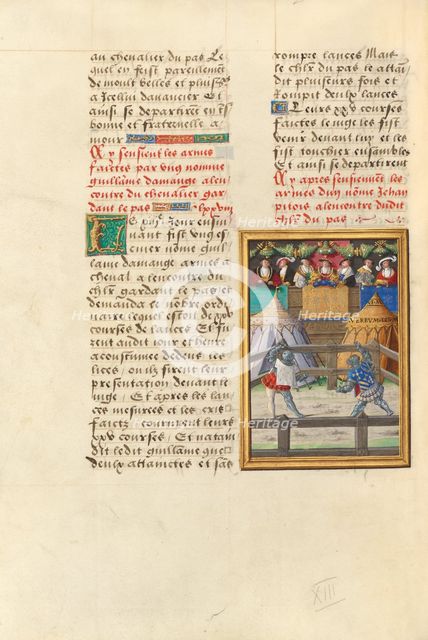 au chevalier du pas Le
quel en feist pareillement
de moult belles et pluss
a Icellui damancier Et
ainsi se departirent en
bonne et fraternelle a
mour
Cy sensieult les armes
faictes par ung nomme
guillame damange alen
contre du chevalier gar
dant le pas
Le jour ensui
vant fist
mer nomé guil
lame damange armé a
cheval a lencontre du
chlr gardant le pas et
demanda le nostre ordi
naire lequel est on de xxv
courses de lances Et fu
rent audit jour et heure
acoustumee dedens les
lices, ou ilz firent leur
presentation devant le
iuge, Et apres les lan
ces mesurees et les cris
faictz coururent leurs
xxv courses, Et nattai
dit ledit guillame que
deulx attainctes et sans
rompre lances Mais
le chlr du pas le attai
dit pluseurs fois et
Rompit deulx lances
Leurs xxv courses
faictes le iuge les fist
venir devant luy et les
fist toucher ensambles
Et ainsi se departirent
Cy apres sensieuvent les
armes duy nomé Jehan
pitois alencontre dudit
chlr du pas
XIII
Heritage
Heritage
Heritage
Heritage